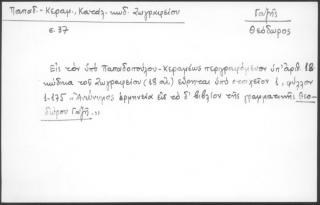 Παπαδ.-Κεραμ., Καταλ. κωδ. Ζωγραφείου
Γαζῆς
σ. 37
Θεόδωρος
Εἰς τὸν ὑπὸ Παπαδοπούλου-Κεραμέως περιγραφόμενον ὑπ' ἀριθ. 18
κώδικα τοῦ Ζωγραφείου (18 αἰ.) εὕρηται ὑπὸ στοιχεῖον 1, φύλλον
1-175 "Ἀνώνυμος ἑρμηνεία εἰς τὸ δ' βιβλίον τῆς γραμματικῆς Θεο-
δώρου Γαζῆ.,,